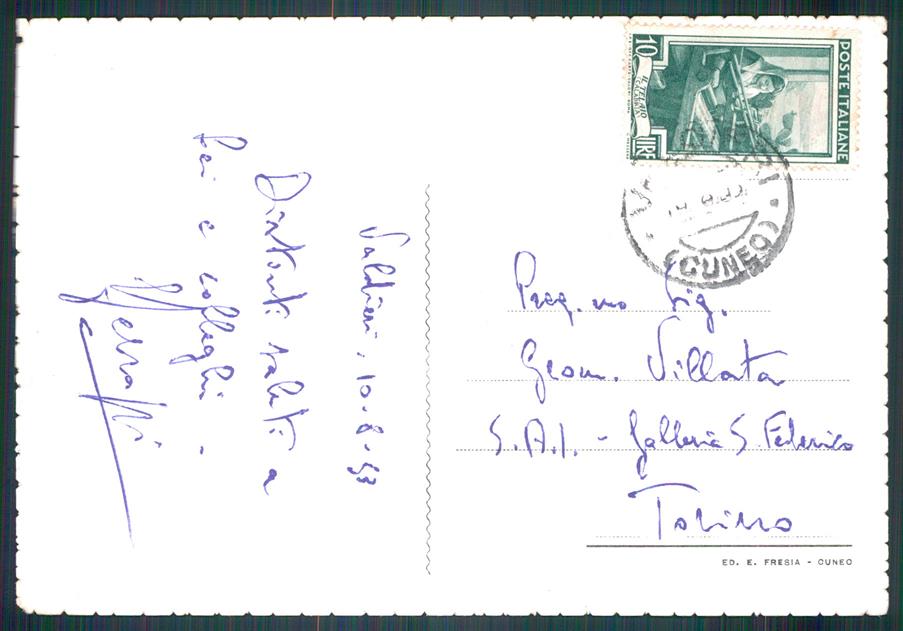 Valdieri, 10.8.53
Distinti saluti a
Lei e colleghi.
POSTE ITALIANE
10
LIRE
IL TELAIO
CALABRIA
(CUNEO)
Preg.mo Sig.
Geom. Villata
S.A.I. - Galleria S. Federico
Torino
ED. E. FRESIA - CUNEO